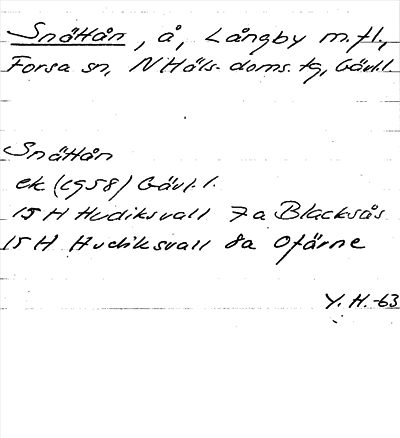 Snåttån, å, Långby m.fl.,
Forsa sn, N Häls. doms. tg, Gävl.l.
Snåttån
ek (1958) Gävl.l.
15 H Hudiksvall 7a Blacksås
15 H Hudiksvall 8a Ofärne
Y. H.-63